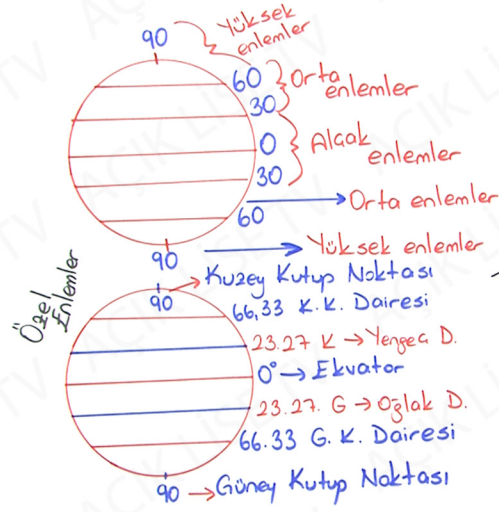 90
Yüksek
enlemler
60
Orta
enlemler
30
0
Alçak
enlemler
30
Orta enlemler
60
90
Yüksek enlemler
Özel
Enlemler
Kuzey Kutup Noktası
90
66,33 K.K. Dairesi
23.27 K → Yengeç D.
0° → Ekvator
23.27. G → Oğlak D.
66.33 G.K. Dairesi
90 → Güney Kutup Noktası